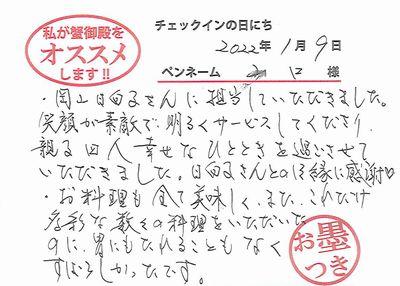 私が蟹御殿を
オススメ
します!!
チェックインの日にち
2022年 1月 9日
ペンネーム 山口 様
・岡山日向子さんに担当していただきました。
笑顔が素敵で明るくサービスしてくださり、
親子四人幸せなひとときを過ごさせて
いただきました。日向子さんとのご縁に感謝♡
・お料理も全て美しく、また、これだけ
多彩な数々の料理をいただいた
のに、胃にもたれることもなく
すばらしかったです。
お墨
つき